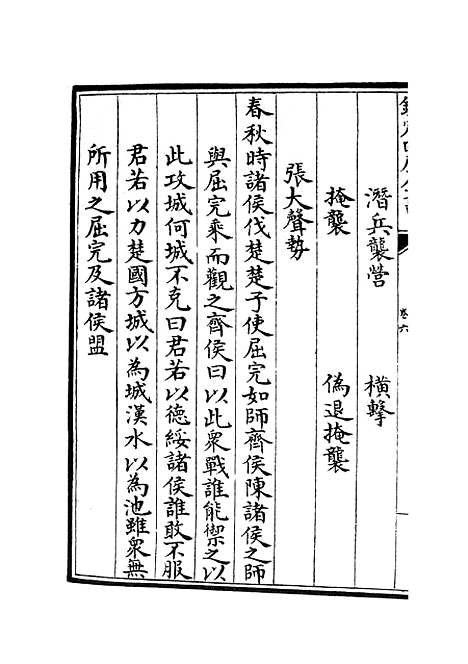 欽定四庫全書
卷六
潛兵襲營 橫擊
掩襲 偽退掩襲
張大聲勢
春秋時諸侯伐楚楚子使屈完如師齊侯陳諸侯之師
與屈完乘而觀之齊侯曰以此眾戰誰能禦之以
此攻城何城不克曰君若以德綏諸侯誰敢不服
君若以力楚國方城以為城漢水以為池雖眾無
所用之屈完及諸侯盟